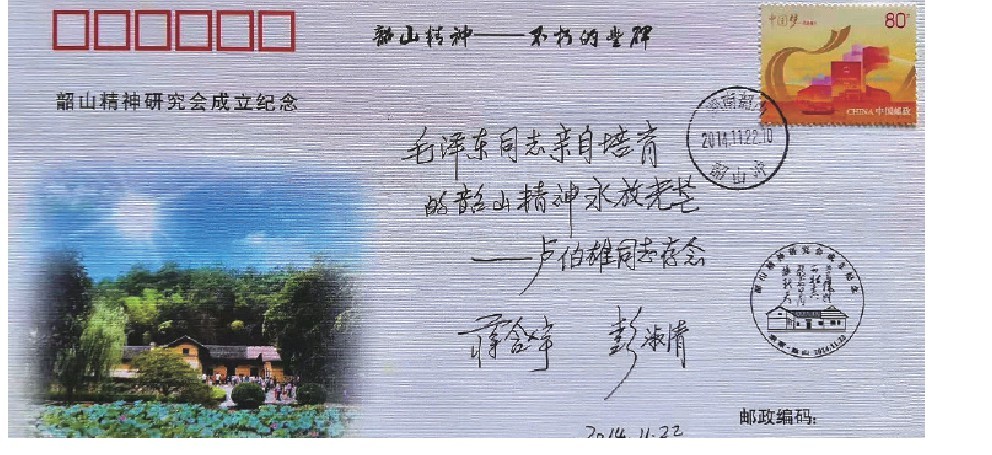 韶山精神——不朽的丰碑
中国梦
80分
CHINA 中国邮政
韶山精神研究会成立纪念
2014.11.22.10
韶山冲
毛泽东同志亲自培育
的韶山精神永放光芒
——卢伯雄同志存念
彭淑清
韶山精神研究会成立纪念
2014.11.22
邮政编码:
2014.11.22